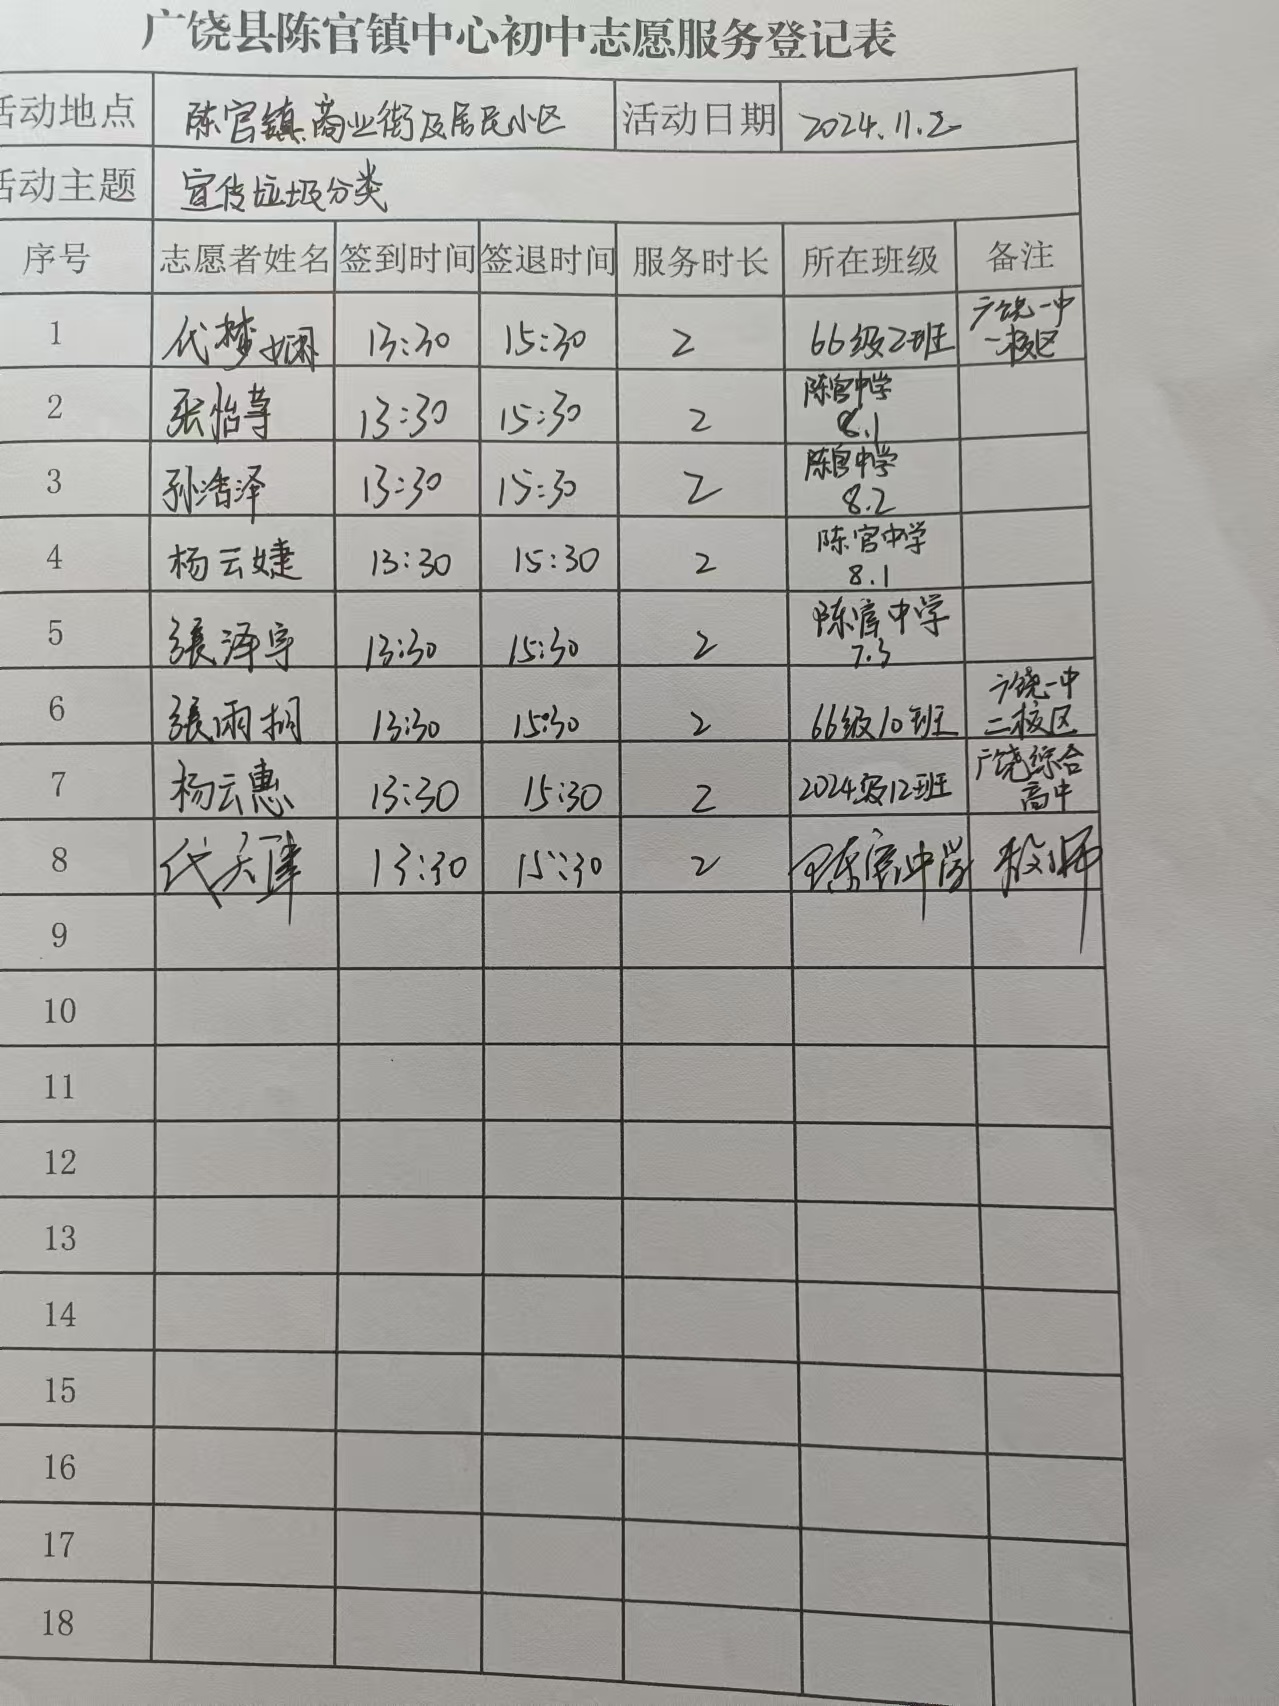 广饶县陈官镇中心初中志愿服务登记表
活动地点 陈官镇商业街及居民小区 活动日期 2024.11.2
活动主题 宣传垃圾分类
序号 志愿者姓名 签到时间 签退时间 服务时长 所在班级 备注
1 代梦娴 13:30 15:30 2 66级2班 广饶一中
一校区
2 张怡 13:30 15:30 2 陈官中学
8.1
3 孙浩泽 13:30 15:30 2 陈官中学
8.2
4 杨云婕 13:30 15:30 2 陈官中学
8.1
5 張泽宇 13:30 15:30 2 陈官中学
7.3
6 張雨桐 13:30 15:30 2 66级10班 广饶一中
二校区
7 杨云惠 13:30 15:30 2 2024级12班 广饶综合
高中
8 代天 13:30 15:30 2 陈官中学 教师
9
10
11
12
13
14
15
16
17
18